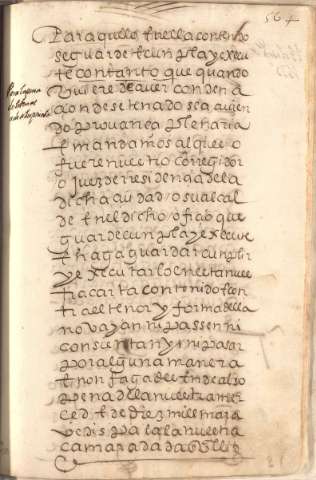 564
Para q̃ llo en ella contenido
se guarde e cunpla y execu
te con tanto que quando
huviere de aver condena
cion de setenado sea avien
do provança plenaria
e mandamos al que es o
fuere nuestro corregidor
o juez de residencia de la
dicha ciudad o su alcal
de en el dicho oficio que
guarde cunpla y execute
e haga guardar cunplir
y executar lo en esta nues
tra carta contenido e con
tra el tenor y forma della
no vayan ni passen ni
consientan yr ni pasar
por alguna manera
e non fagades ende al so
pena de la nuestra mer
ced e de diez mill mara
vedis para la nuestra
camara dada en